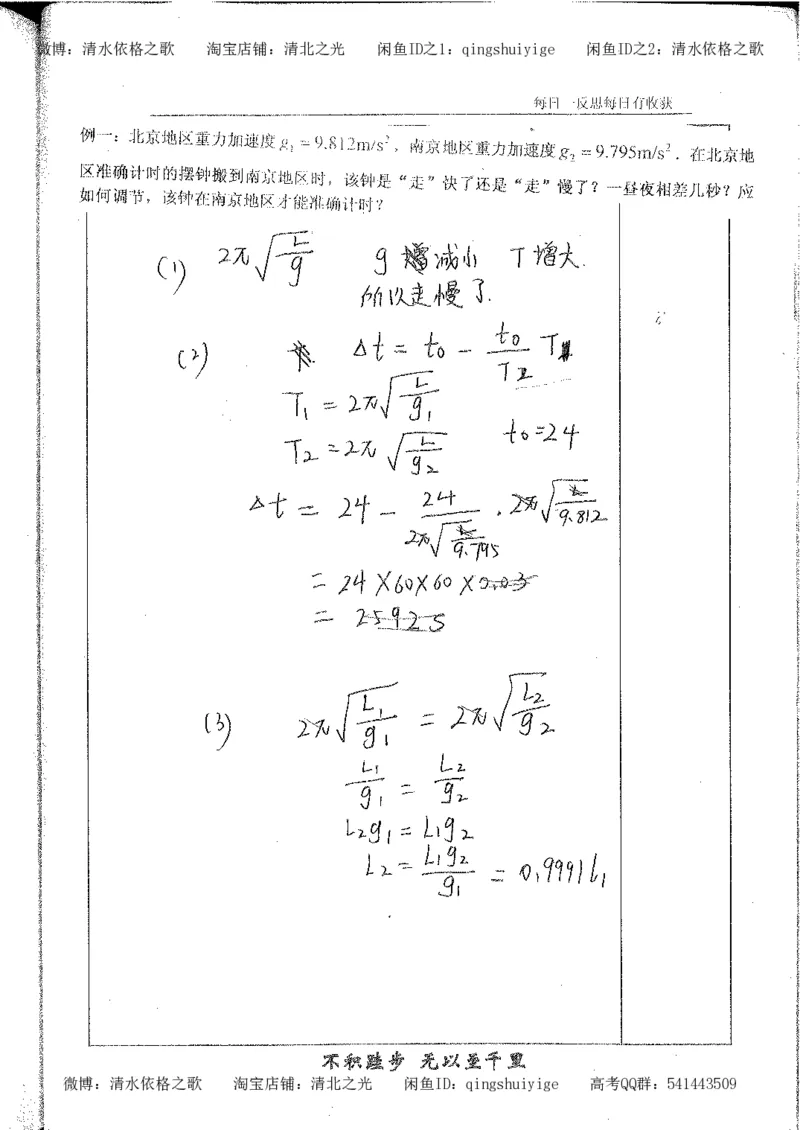 微博：清水依格之歌 淘宝店铺：清北之光 闲鱼ID之1：qingshuiyige 闲鱼ID之2：清水依格之歌
每日一反思每日有收获
例一：北京地区重力加速度 g₁ = 9.812m/s²，南京地区重力加速度 g₂ = 9.795m/s²．在北京地
区准确计时的摆钟搬到南京地区时，该钟是“走”快了还是“走”慢了？一昼夜相差几秒？应
如何调节，该钟在南京地区才能准确计时？
(1) 2π√(L/g) g 减小 T 增大.
所以走慢了.
(2) Δt = t₀ - t₀/T₂ T₁
T₁ = 2π√(L/g₁)
T₂ = 2π√(L/g₂) t₀=24
Δt = 24 - 24/(2π√(L/9.795)) · 2π√(L/9.812)
= 24×60×60×0.03
= 2592s
(3) 2π√(L₁/g₁) = 2π√(L₂/g₂)
L₁/g₁ = L₂/g₂
L₂g₁ = L₁g₂
L₂ = L₁g₂/g₁ = 0.999L₁
不积跬步 无以至千里
微博：清水依格之歌 淘宝店铺：清北之光 闲鱼ID：qingshuiyige 高考QQ群：541443509